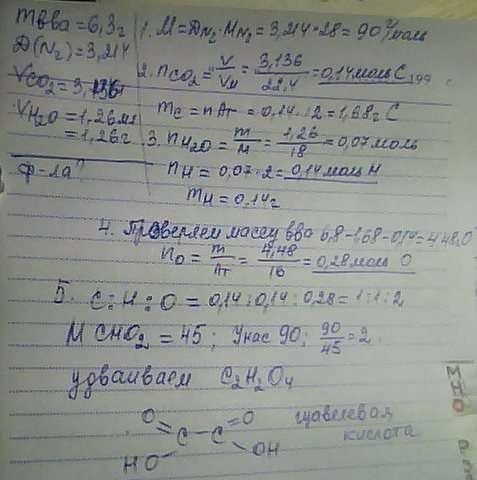 mвва = 6,3г
D(N₂) = 3,214
VCO₂ = 3,136л
VH₂O = 1,26мл
= 1,26г
ф-ла?
1. M = DN₂·MN₂ = 3,214·28 = 90 г/моль
2. nCO₂ = V/Vм = 3,136/22,4 = 0,14 моль C
mC = nАт = 0,14·12 = 1,68г C
3. nH₂O = m/M = 1,26/18 = 0,07 моль
nH = 0,07·2 = 0,14 моль H
mH = 0,14г
4. Проверяем массу вва 6,3-1,68-0,14 = 4,48г O
nO = m/Ат = 4,48/16 = 0,28 моль O
5. C:H:O = 0,14:0,14:0,28 = 1:1:2
M CHO₂ = 45; У нас 90; 90/45 = 2
удваиваем C₂H₂O₄
O O
C — C
HO OH
щавелевая
кислота